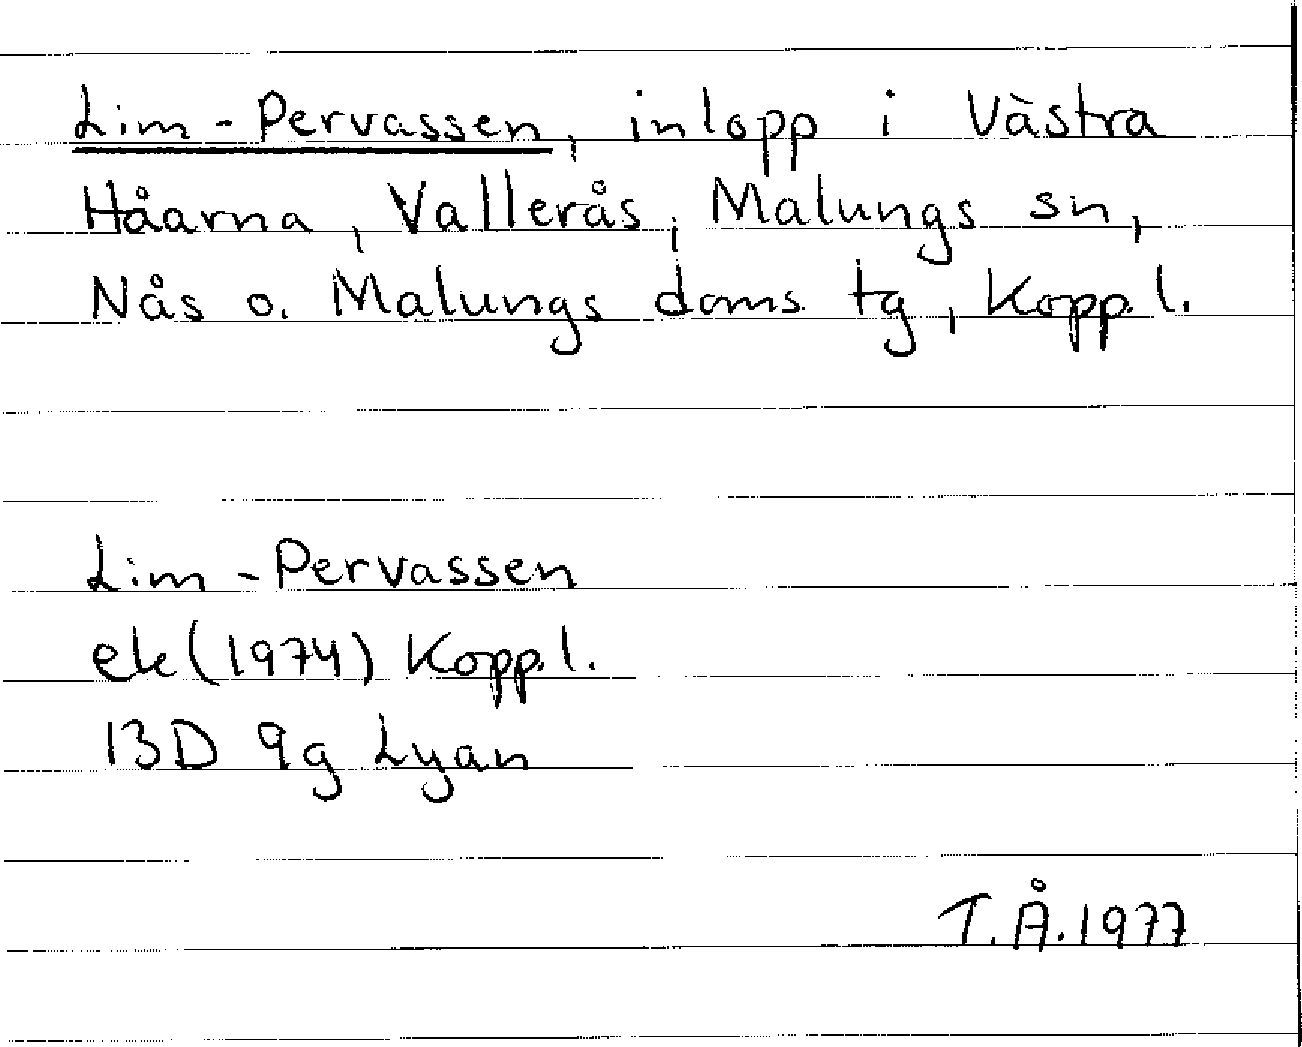 Lim-Pervassen, inlopp i Västra
Håarna, Vallerås, Malungs sn,
Nås o. Malungs doms. tg, Kopp. l.
Lim-Pervassen
ek (1974) Kopp. l.
13D 9g Lyan
T.Å. 1977